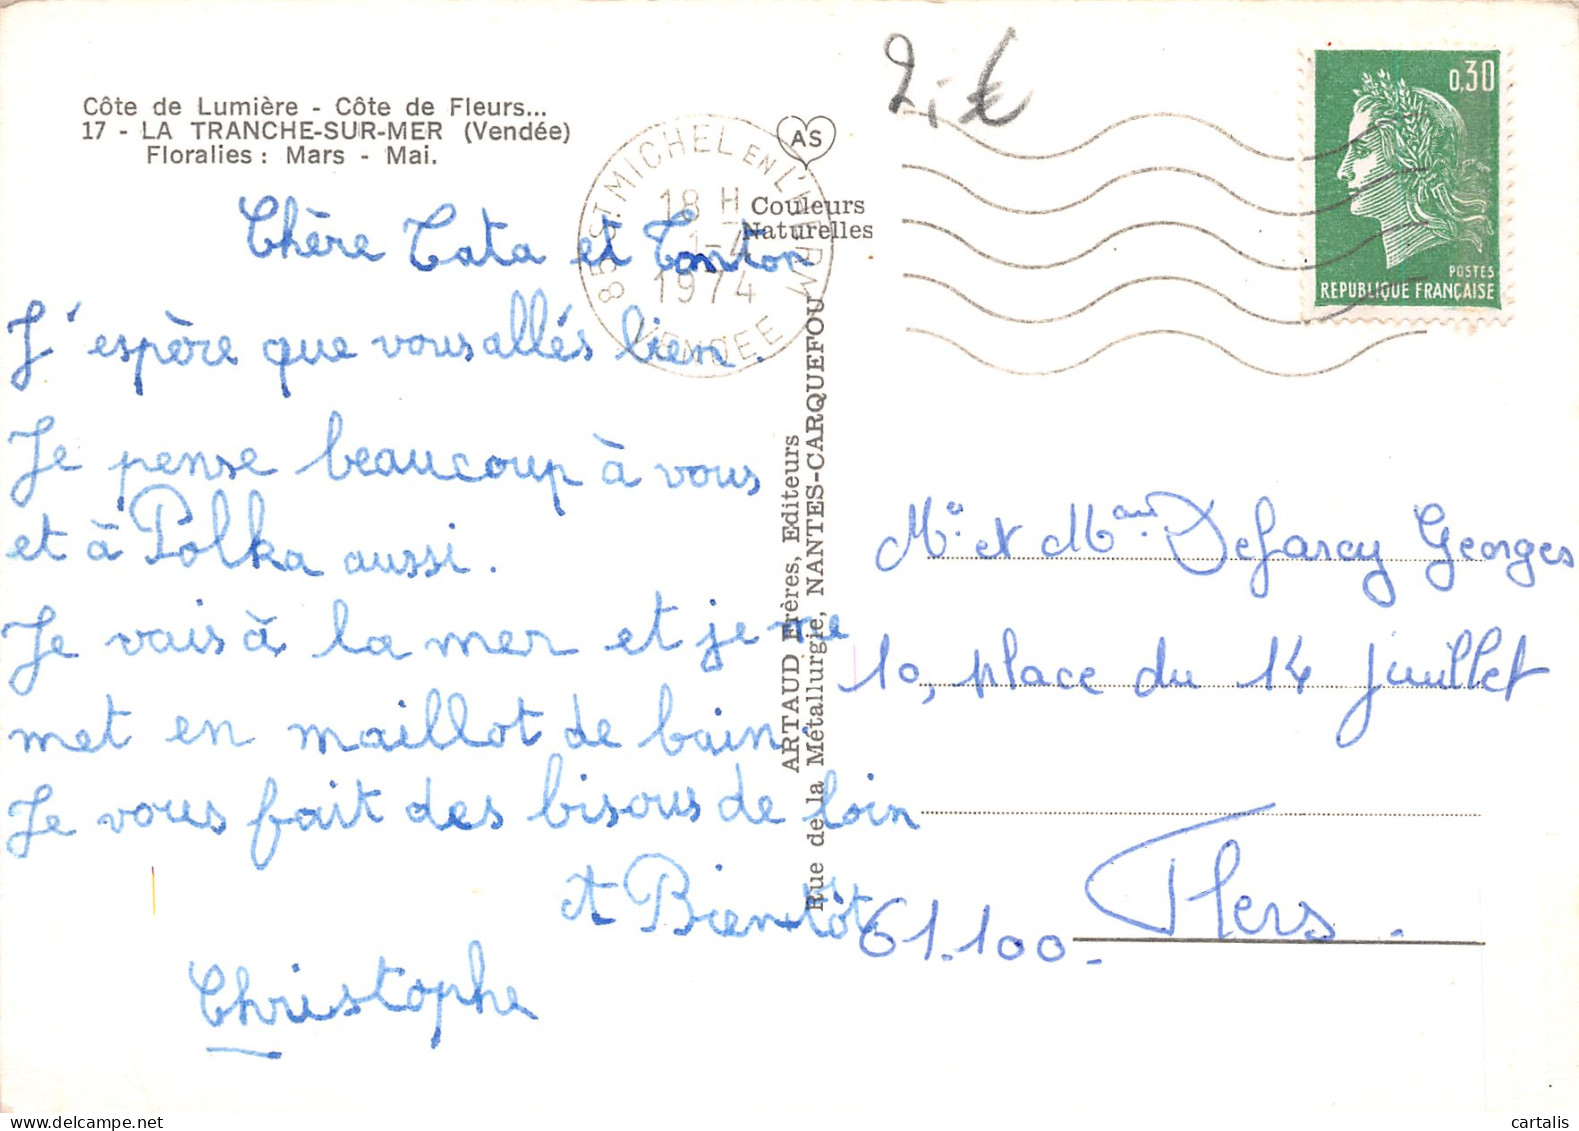 Côte de Lumière - Côte de Fleurs...
17 - LA TRANCHE-SUR-MER (Vendée)
Floralies : Mars - Mai.
Chère Tata et Tonton
J'espère que vous allés bien.
Je pense beaucoup à vous
et à Polka aussi.
Je vais à la mer et je me
met en maillot de bain
Je vous fait des bisous de loin
A Bientôt
Christophe
85 ST MICHEL EN L'HERM
18 H
1-4
1974
VENDEE
AS
Couleurs
Naturelles
ARTAUD Frères, Editeurs
Rue de la Métallurgie, NANTES-CARQUEFOU
2,-€
0,30
POSTES
REPUBLIQUE FRANÇAISE
Mr et Mme Georges
10, place du 14 juillet
61.100. Flers.
cartalis